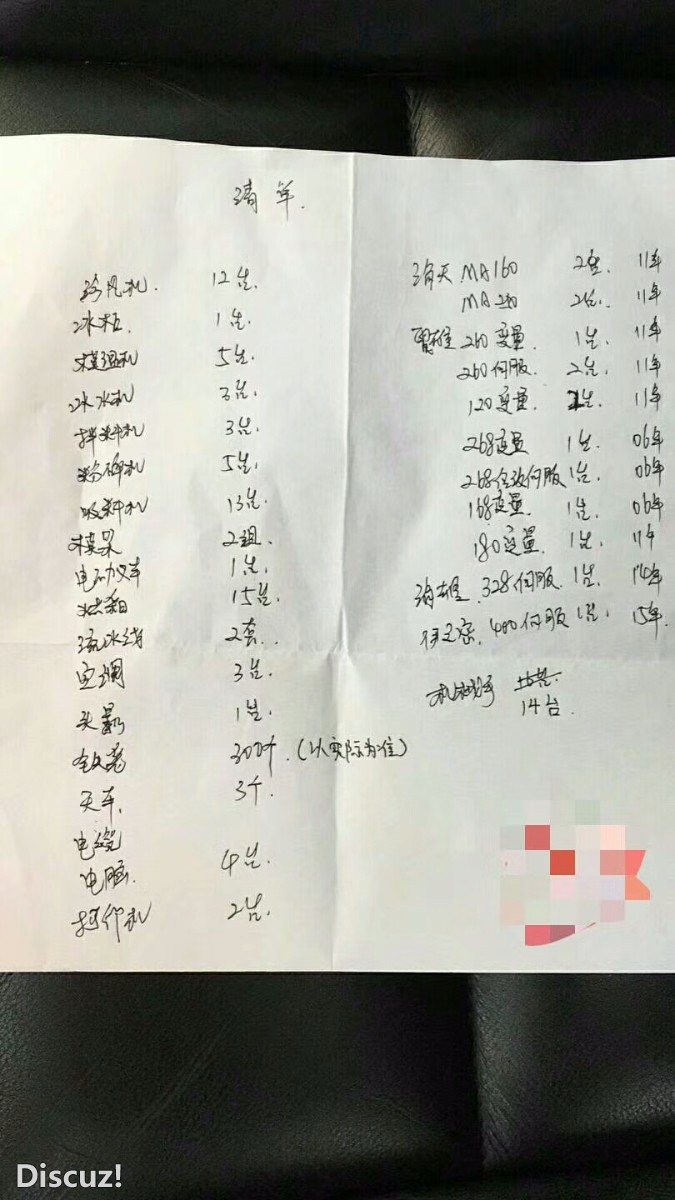 清单.
冷风机. 12台.
冰柜. 1台.
模温机 5台.
冰水机 3台.
拌料机 3台.
粉碎机 5台.
吸料机 13台.
模架 2组.
电动叉车 1台.
水箱 15台.
流水线 2套.
空调 3台.
1台.
300个.(以实际为准)
天车. 3个.
电缆
电脑. 4台.
打印机 2台.
海天 MA160 2台. 11年
MA 2台. 11年
260变量 1台. 11年
260伺服. 2台. 11年
120变量. 台. 11年
268变量 1台. 06年
268伺服 1台. 06年
168变量. 1台. 06年
180变量. 1台. 11年
328伺服. 1台. 14年
伊之密. 400伺服 1台. 15年.
机械手
14台.
Discuz!